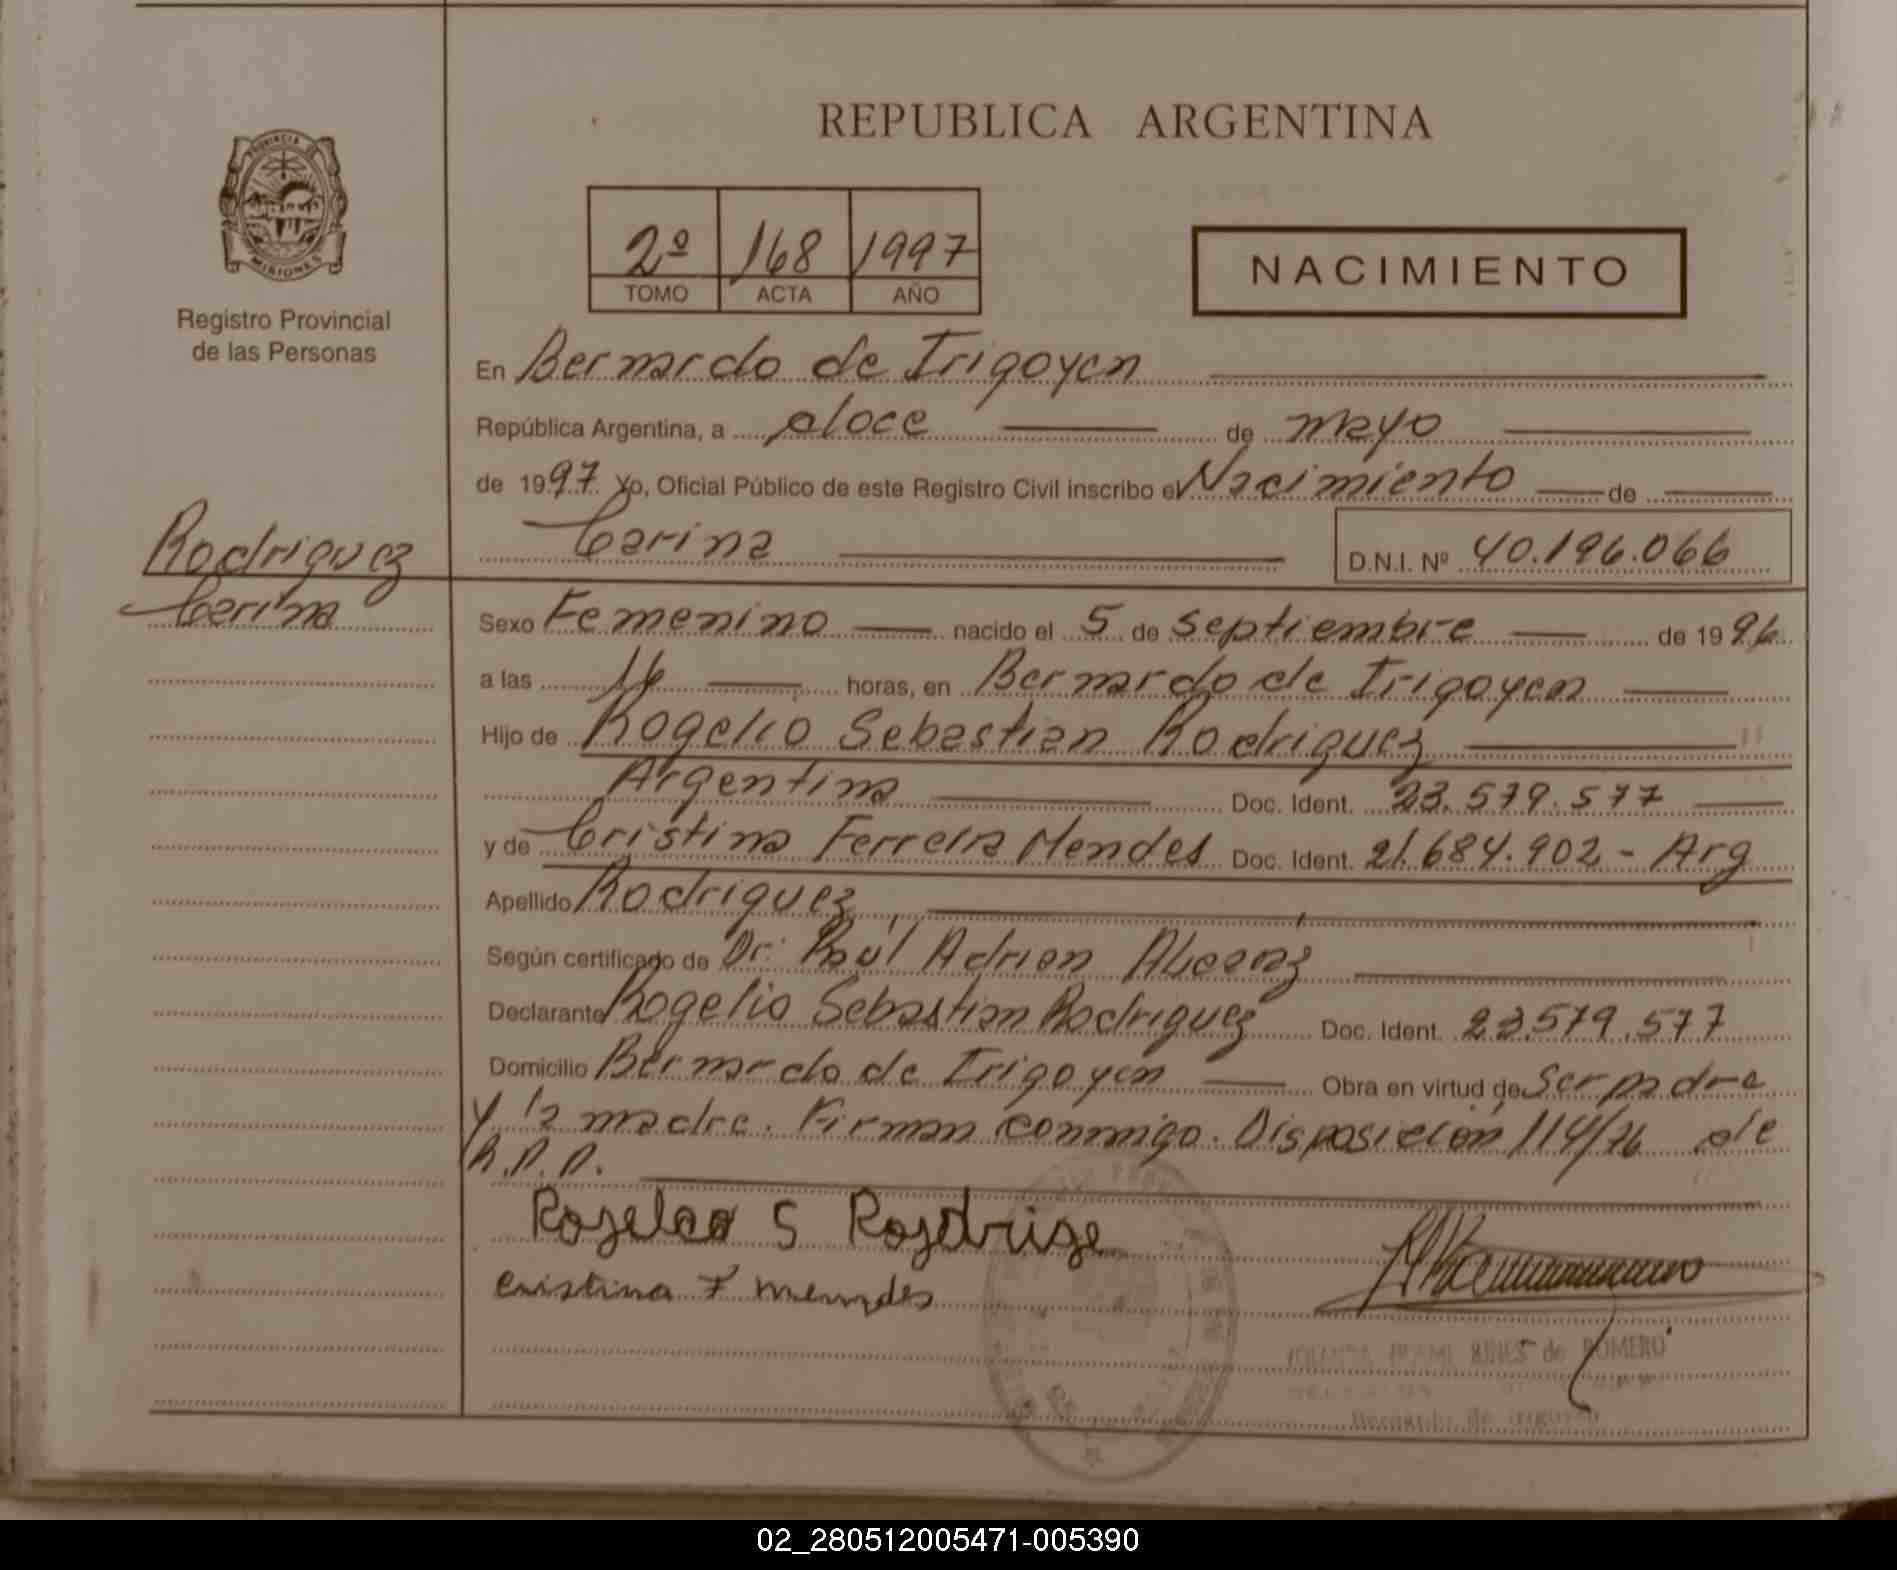 REPUBLICA ARGENTINA
PROVINCIA DE
MISIONES
Registro Provincial
de las Personas
2º 168 1997
TOMO ACTA AÑO
NACIMIENTO
En Bernardo de Irigoyen
República Argentina, a doce de mayo
de 1997 Yo, Oficial Público de este Registro Civil inscribo el Nacimiento de
Carina D.N.I. Nº 40.196.066
Rodriguez
Carina
Sexo Femenino nacido el 5 de septiembre de 1996
a las 16 horas, en Bernardo de Irigoyen
Hijo de Rogelio Sebastian Rodriguez
Argentina Doc. Ident. 23.579.577
y de Cristina Ferreira Mendes Doc. Ident. 21.684.902 - Arg
Apellido Rodriguez
Según certificado de Dr. Raúl Adrian
Declarante Rogelio Sebastian Rodriguez Doc. Ident. 23.579.577
Domicilio Bernardo de Irigoyen Obra en virtud de Ser padre
y la madre. Firman conmigo. Disposición 114/76 de
R.P.P.
Rogelio S Rojdrige
cristina F mendes
de ROMERO
Bernardo de Irigoyen
02_280512005471-005390